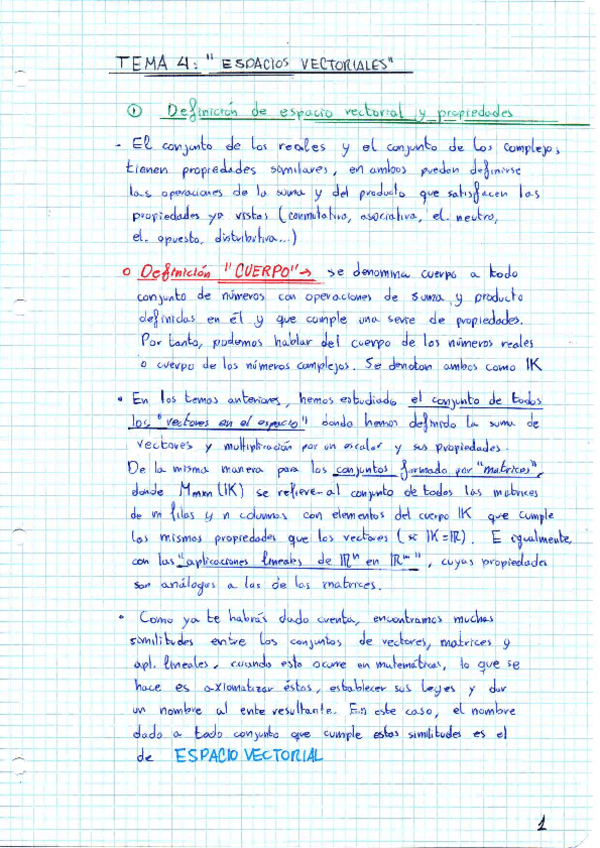 TEMA 4: "ESPACIOS VECTORIALES"
① Definición de espacio vectorial y propiedades
- El conjunto de los reales y el conjunto de los complejos,
tienen propiedades similares, en ambos pueden definirse
las operaciones de la suma y del producto que satisfacen las
propiedades ya vistas (conmutativa, asociativa, el. neutro,
el. opuesto, distributiva...)
o Definición "CUERPO" → se denomina cuerpo a todo
conjunto de números con operaciones de suma y producto
definidas en él y que cumple una serie de propiedades.
Por tanto, podemos hablar del cuerpo de los números reales
o cuerpo de los números complejos. Se denotan ambos como IK
• En los temas anteriores, hemos estudiado el conjunto de todos
los "vectores en el espacio" donde hemos definido la suma de
vectores y multiplicación por un escalar y sus propiedades.
De la misma manera para los conjuntos formado por "matrices",
donde Mmxn (IK) se refiere al conjunto de todas las matrices
de m filas y n columnas con elementos del cuerpo IK que cumple
las mismas propiedades que los vectores (IK = IR). E igualmente,
con las "aplicaciones lineales de IRⁿ en IRᵐ", cuyas propiedades
son análogas a las de las matrices.
• Como ya te habrás dado cuenta, encontramos muchas
similitudes entre los conjuntos de vectores, matrices y
apl. lineales, cuando esto ocurre en matemáticas, lo que se
hace es axiomatizar éstas, establecer sus leyes y dar
un nombre al ente resultante. En este caso, el nombre
dado a todo conjunto que cumple estas similitudes es el
de ESPACIO VECTORIAL
1